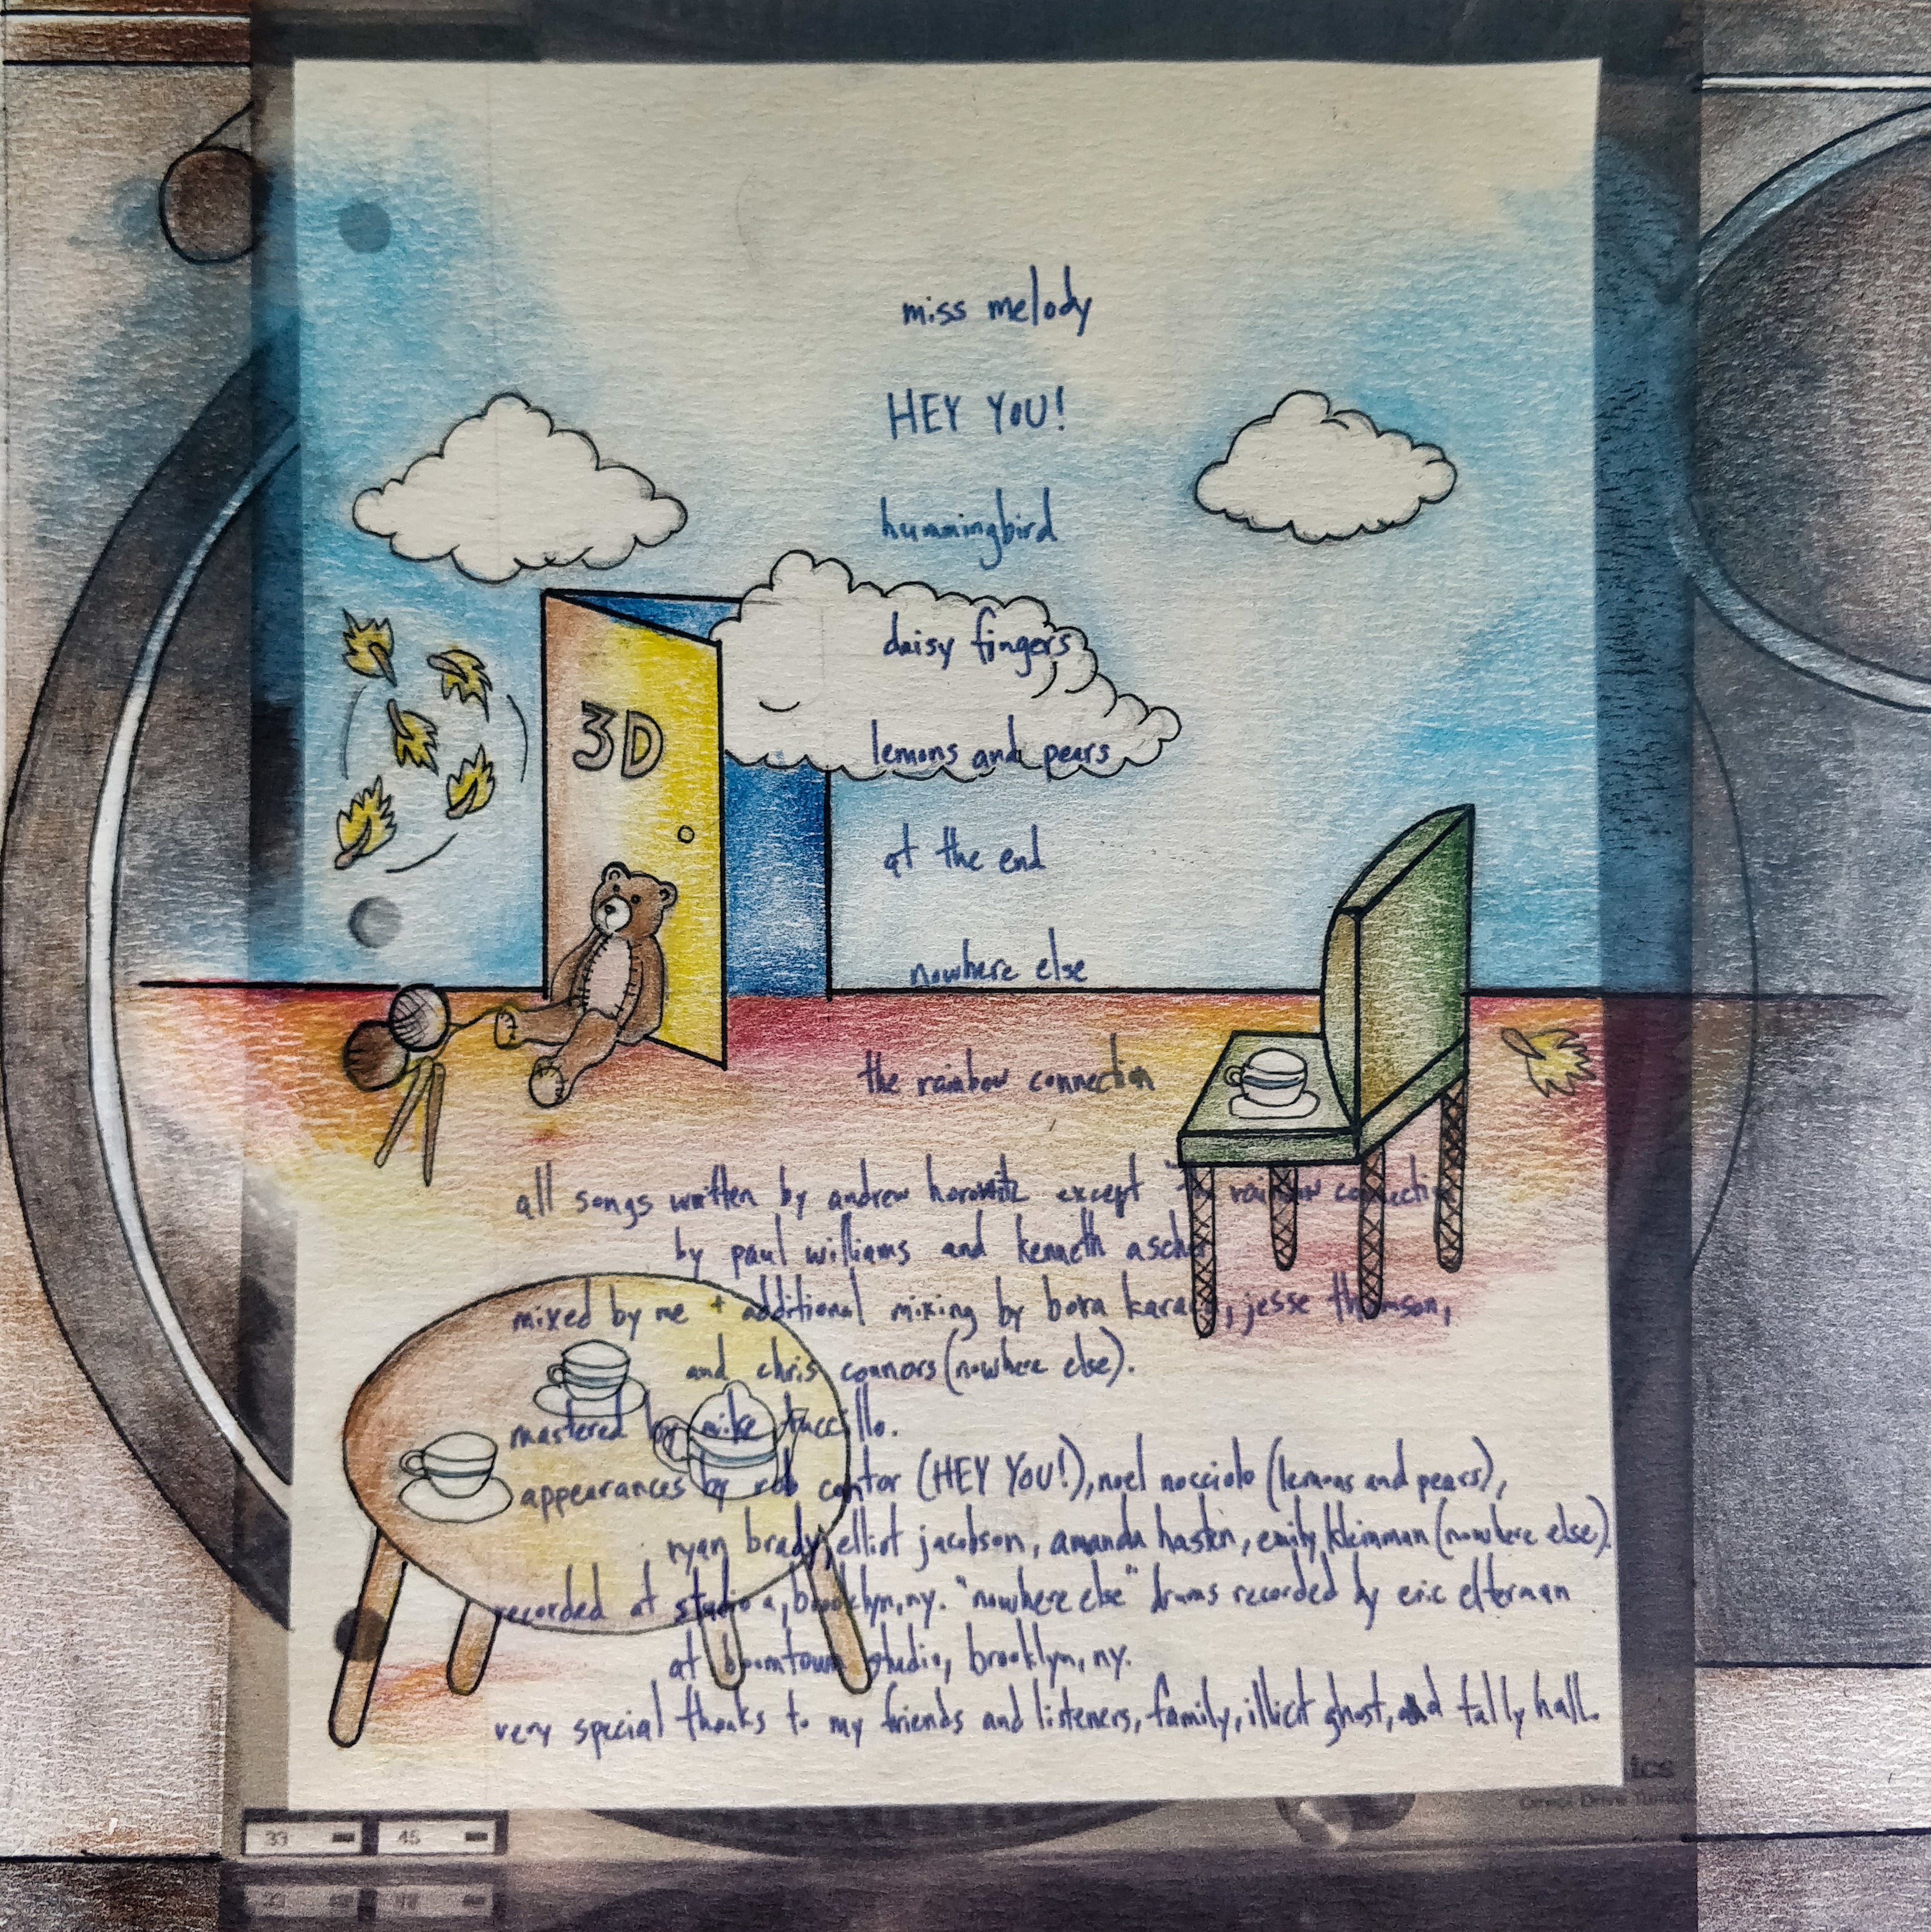 miss melody
HEY YOU!
hummingbird
daisy fingers
lemons and pears
at the end
nowhere else
the rainbow connection
3D
all songs written by andrew horowitz except "the rainbow connection
by paul williams and kenneth ascher
mixed by me + additional mixing by bora , jesse thomson,
and chris connors (nowhere else).
mastered by mike tuccillo.
appearances by rob cantor (HEY YOU!), noel nocciolo (lemons and pears),
ryan brady, elliot jacobson, amanda haskin, emily kleinman (nowhere else).
recorded at studio a, brooklyn, ny. "nowhere else" drums recorded by eric elterman
at boomtown studio, brooklyn, ny.
very special thanks to my friends and listeners, family, illicit ghost, and tally hall.
ics
Direct Drive
33 45